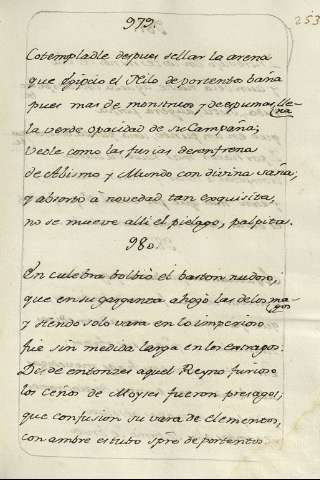 979.
253
Cotempladle despues sellar la arena
que Egipcio el Nilo de portentos baña
pues mas de monstruos y de espumas lle
na
la verde opacidad de su Campaña;
Vedle como las furias desenfrena
de Abismo y Mundo con divina saña,
y absorto à novedad tan exquisita,
no se mueve alli el pielago, palpita.
980.
En culebra bolbiò el baston nudoso,
que en su garganta ahogò las de los ma
gos
y siendo solo vara en lo imperioso
fue sin medida larga en los estragos.
Desde entonzes aquel Reyno furioso
los ceños de Moyses fueron presagos,
que confusion su vara de elementos,
con ambre estubo spre de portentos